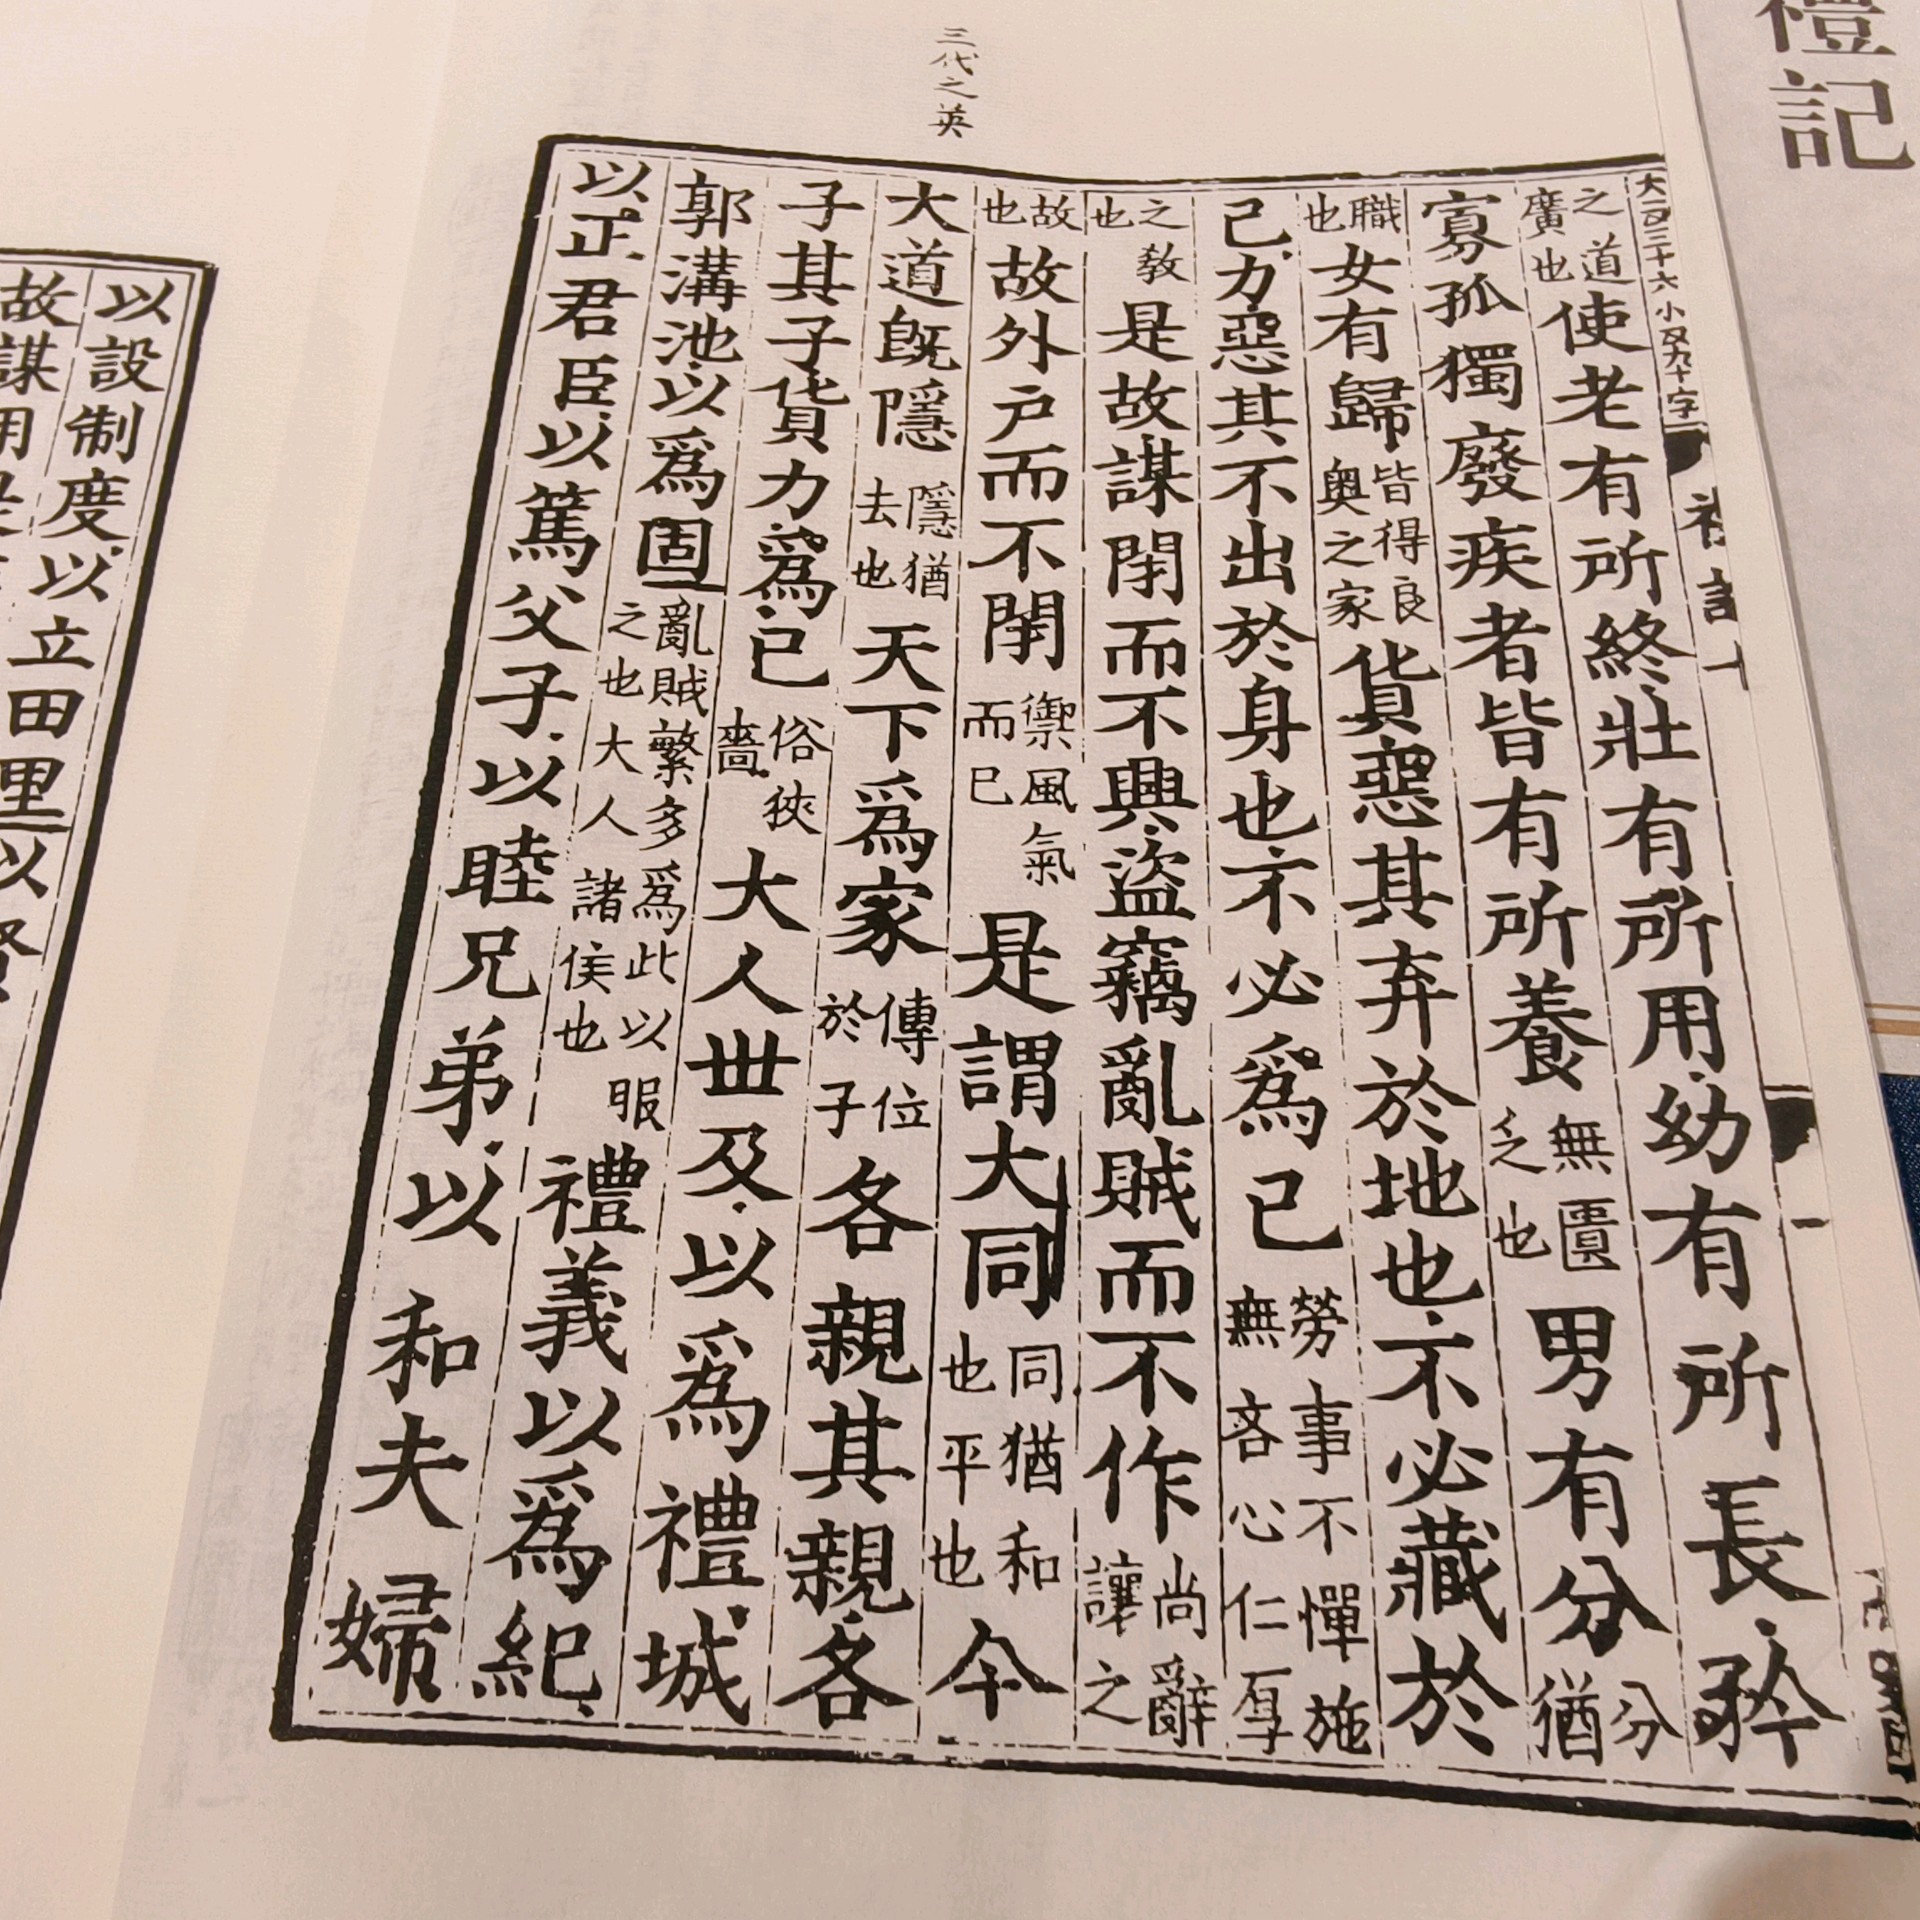 禮記
三代之英
之道廣也使老有所終壯有所用幼有所長矜
寡孤獨廢疾者皆有所養無匱乏也男有分分猶
職也女有歸皆得良奧之家貨惡其弃於地也不必藏於
己力惡其不出於身也不必爲己勞事不憚施無吝心仁厚
之教也是故謀閉而不興盜竊亂賊而不作尚辭讓之
故也故外户而不閉禦風氣而已是謂大同同猶和也平也今
大道旣隱隱猶去也天下爲家傳位於子各親其親各
子其子貨力爲己俗狹嗇大人丗及以爲禮城
郭溝池以爲固亂賊繁多爲此以服之也大人諸侯也禮義以爲紀
以正君臣以篤父子以睦兄弟以和夫婦
以設制度以立田里以賢
故謀用